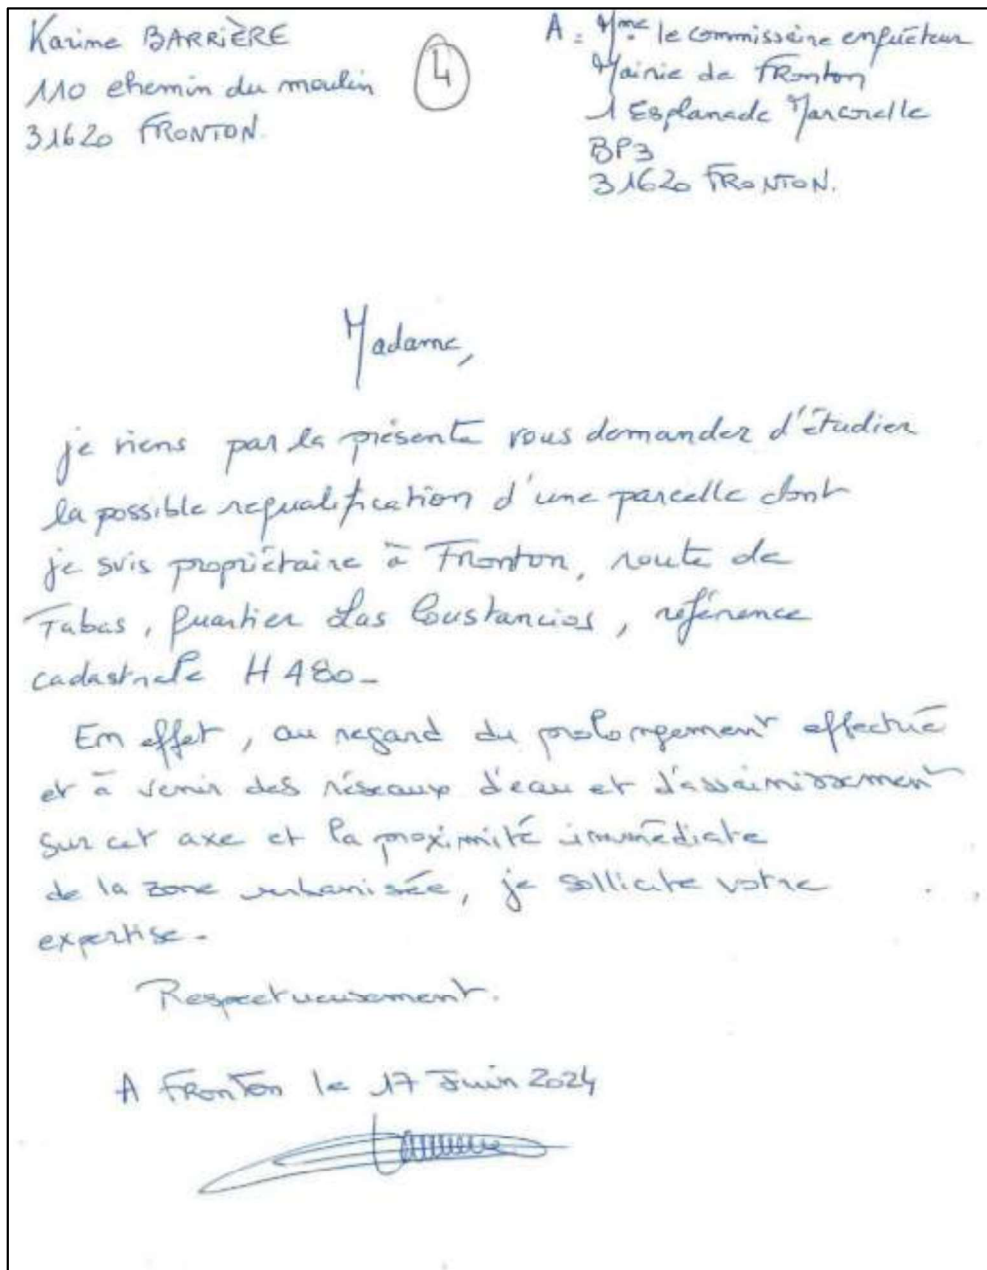 Karine BARRIÈRE
110 chemin du moulin
31620 FRONTON.
4
A : Mme le commissaire enquêteur
Mairie de FRonton
1 Esplanade Marcorelle
BP3
31620 FRONTON.
Madame,
je viens par la présente vous demander d'étudier
la possible requalification d'une parcelle dont
je suis propriétaire à Fronton, route de
Fabas, quartier Las Coustancios, référence
cadastrale H 480-
En effet, au regard du prolongement effectué
et à venir des réseaux d'eau et d'assainissement
sur cet axe et la proximité immédiate
de la zone urbanisée, je sollicite votre
expertise-
Respectueusement.
A FRonTon le 17 Juin 2024